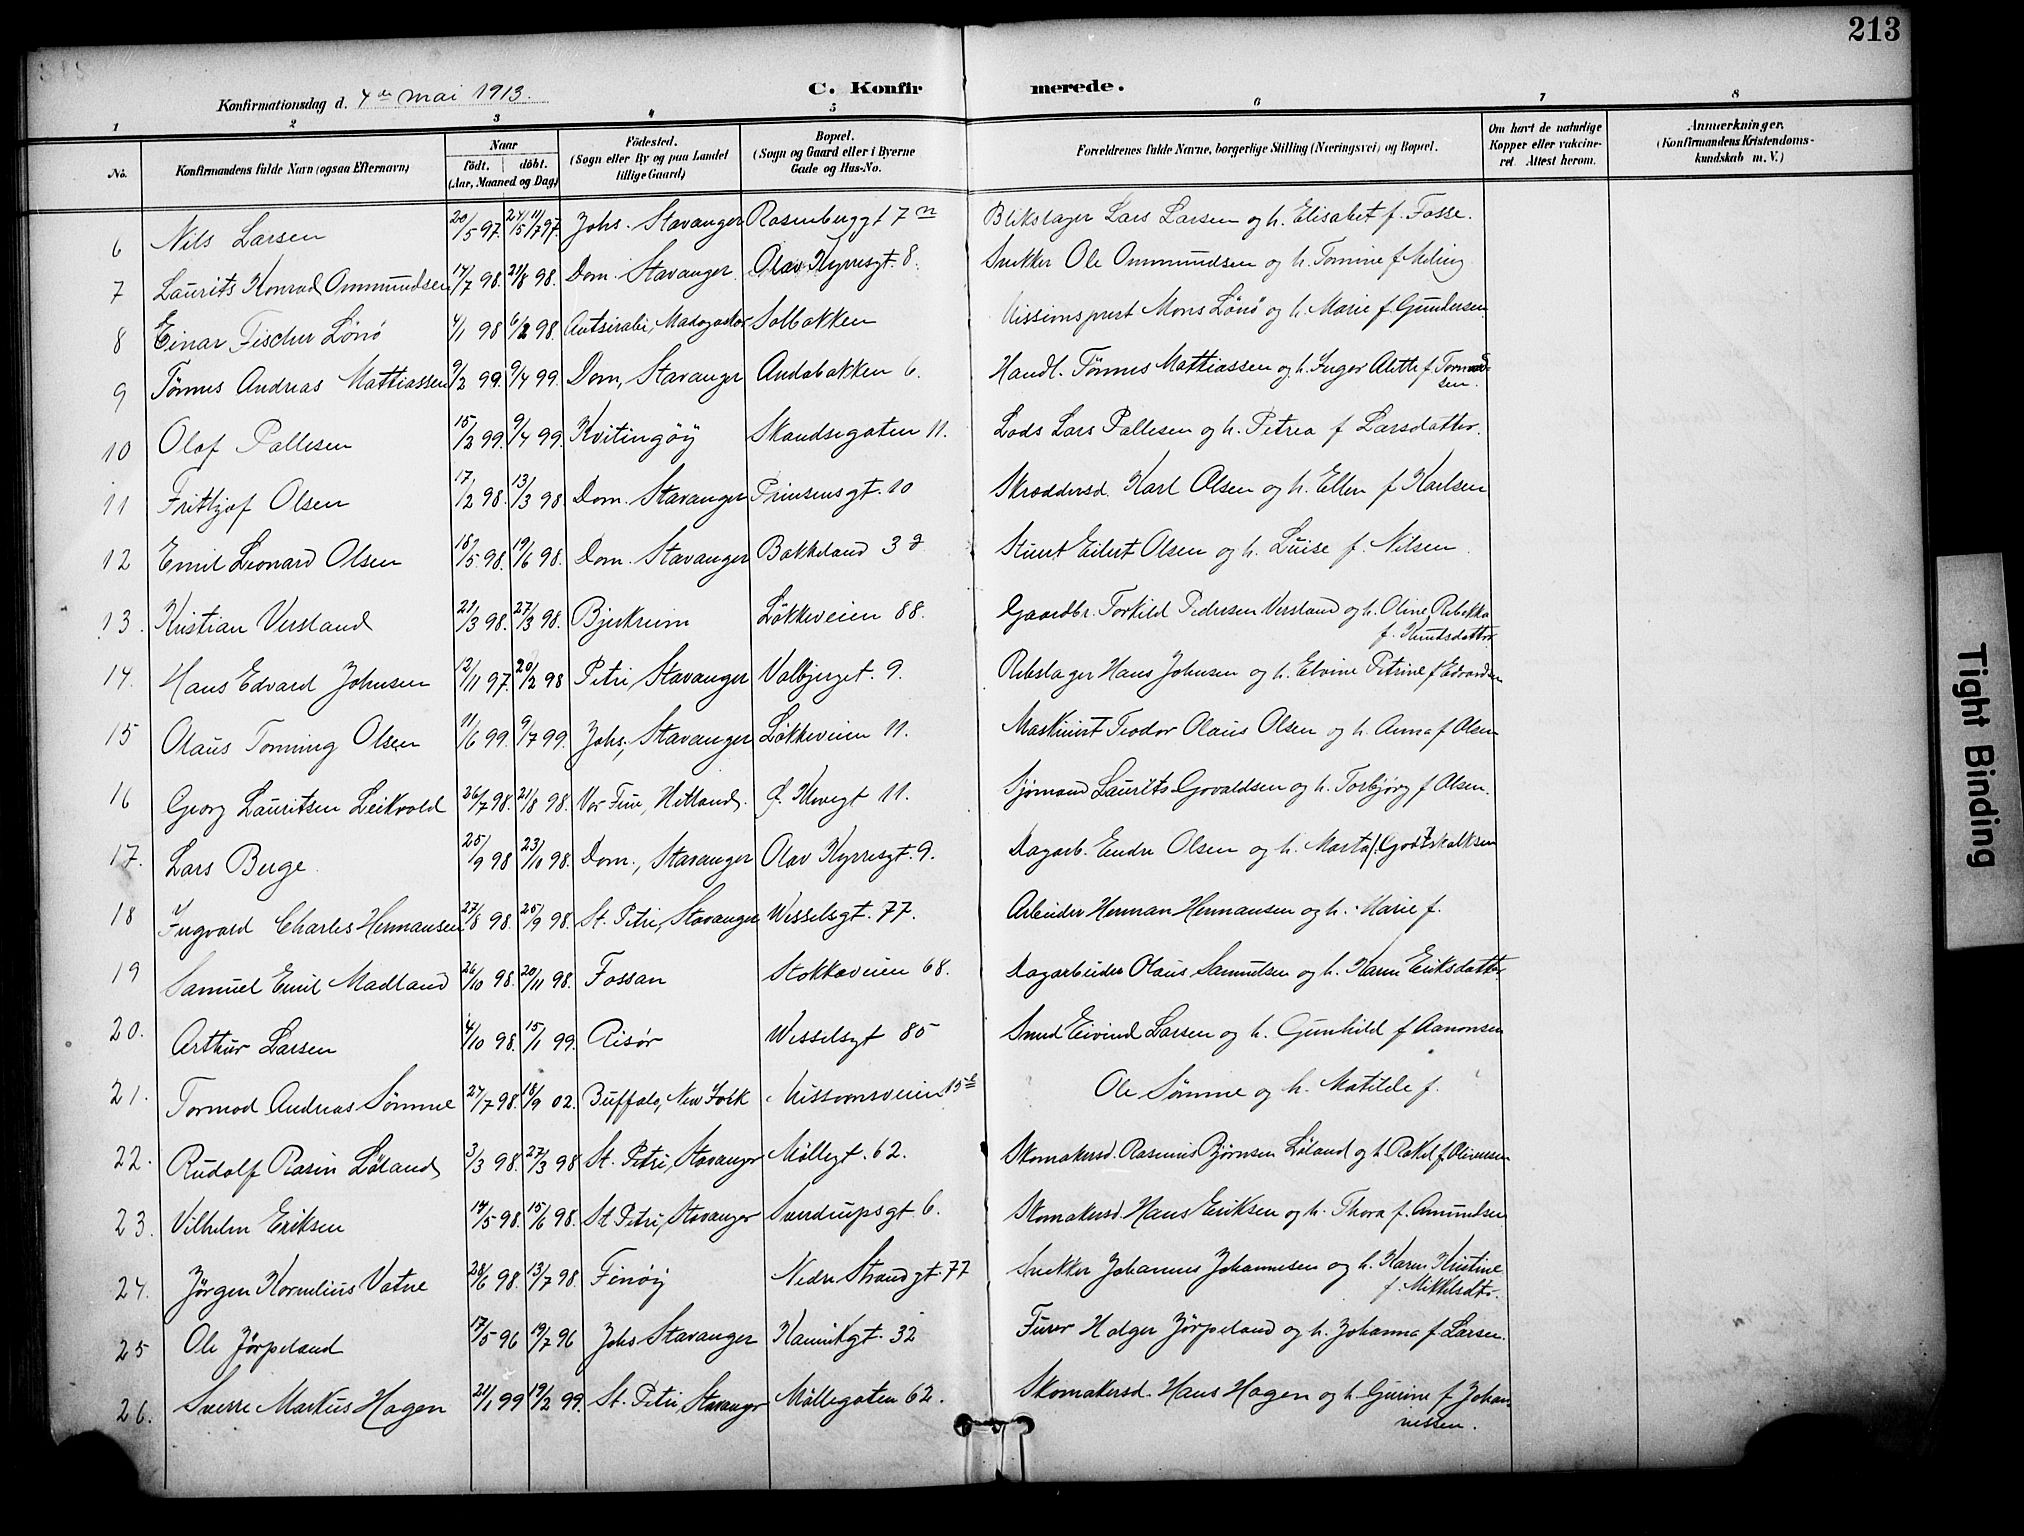 213
Konfirmationsdag d. 4de mai 1913.
C. Konfir merede.
1 2 3 4 5 6 7 8
No. Konfirmandens fulde Navn (ogsaa Efternavn) Naar födt. döbt. (Aar, Maaned og Dag) Födested. (Sogn eller By og paa Landet tillige Gaard) Bopæl. (Sogn og Gaard eller i Byerne Gade og Hus-No. Forældrenes fulde Navne, borgerlige Stilling (Næringsvei) og Bopæl. Om havt de naturlige Kopper eller vakcineret. Attest herom. Anmærkninger. (Konfirmandens Kristendomskundskab m. V.)
6 Nils Larsen 20/5 97. Johs. Stavanger Rosenberggt 7 Blikslager Lars Larsen og h. Elisabet f. Fosse.
7 Laurits Konrad Ommundsen 14/7 98. 21/8 98. Dom. Stavanger Olav Kyrresgt. 8. Snekker Ole Ommundsen og h. Tomine f. Meling
8 Einar Fischer Lönö 4/1 98 6/2 98. Antsirabe, Madagaskar Solbakken Missionsprest Mons Lönö og h. Marie f. Gundersen
9 Tönnes Andreas Mattiassen 9/2 99. 9/4 99. Dom, Stavanger Andabakken 6. Handl. Tönnes Mattiassen og h. Inger Alette f.
10 Olaf Pallesen 15/2 99. 9/4 99. Kvitingöy Skandsegaten 11. Lods Lars Pallesen og h. Petrea f Larsdatter.
11 Fritjof Olsen 17/2 98. 13/3 98. Dom. Stavanger Prinsensgt. 10 Skreddersd. Karl Olsen og h. Ellen f Karlsen
12 Emil Leonard Olsen 18/5 98. 19/6 98. Dom. Stavanger Bakkeland 3 Stuert Eilert Olsen og h. Luise f. Nilsen
13. Kristian Versland 21/3 98. 27/3 98. Bjerkreim Lökkeveien 88. Gaardbr. Torkild Pedersen Versland og h. Oline Rebekka
f. Knudsdatter
14. Hans Edvard Johnsen 12/11 97. 20/2 98 Petri, Stavanger Valbjerget. 9. Rebslager Hans Johnsen og h. Elvine Petrine f Edvardsen
15 Olaus Tonning Olsen 11/6 99. 9/7 99. Johs, Stavanger Lökkeveien 11. Maskinist Teodor Olaus Olsen og h. Anna f Olsen
16 Georg Lauritsen Leikvold 26/7 98. 21/8 98. Vor Frue, Hetland. 11. Sjömand Laurits Govaldsen og h. Torbjörg f Olsen.
17. Lars Berge 25/9 98 23/10 98. Dom., Stavanger Olav Kyrresgt. 9. Dagarb. Endre Olsen og h. Marta f. Godtskalksen
18 Ingvard Charles Hermansen 27/8 98. 25/9 98. St. Petri, Stavanger Wesselsgt. 77. Arbeider Herman Hermansen og h. Marie f.
19 Samuel Emil Madland 26/10 98. 20/11 98. Fossan Stokkaveien 68. Dagarbeider Olaus Samuelsen og h. Karen Eriksdatter
20. Arthur Larsen 4/10 98. 15/1 99. Risör Wesselsgt 85 Smed Eivind Larsen og h. Gunhild f Aanonsen
21. Tormod Andreas Sömme 27/7 98. 18/9 02. Buffalo, New York Missionsveien 15 Ole Sömme og h. Matilde f.
22. Rudolf Rasin Löland 3/3 98. 27/3 98 St. Petri, Stavanger Möllegt. 62. Skomakersd. Rasmus Björnsen Löland og h. Rakel f Oliversen
23. Vilhelm Eriksen 14/5 98. 15/6 98. St Petri, Stavanger Sverdrupsgt 6. Skomakersd. Hans Eriksen og h. Thora f. Amundsen
24. Jörgen Kornelius Vatne 26/6 98. 13/7 98. Finöy Nedre Strandgt. 77 Snekker Johannes Johannesen og h. Karen Kristine
f. Mikkelsdtr.
25 Ole Jörpeland 17/5 96 19/7 96 Johs Stavanger Kannikgt. 32 Furer Holger Jörpeland og h. Johanna f Larsen.
26. Sverre Markus Hagen 21/1 99 19/2 99. St. Petri, Stavanger Möllegaten 62. Skomakersd. Hans Hagen og h. Gurine f Johan
nessen.
Tight Binding